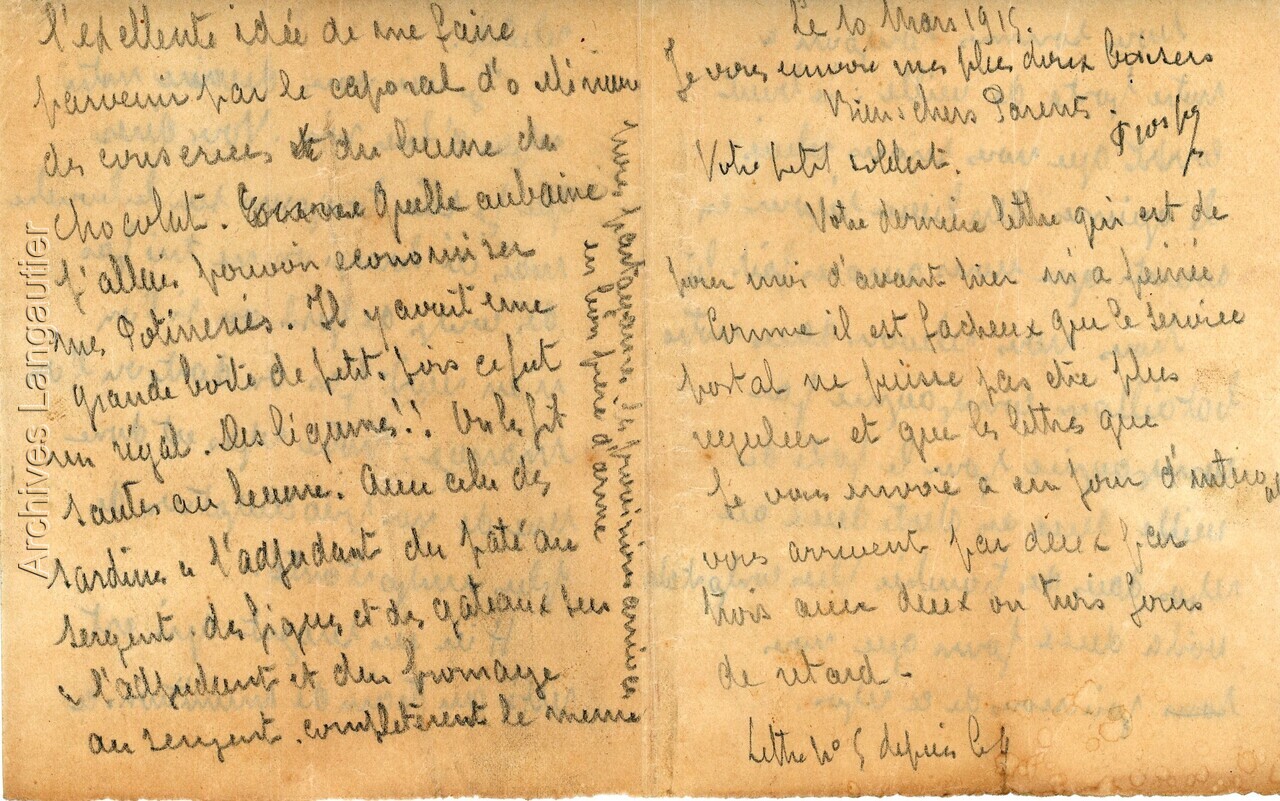 Le 10 Mars 1915
Je vous envoie mes plus doux baisers
Bien chers Parents.
Prosper
Votre petit soldat.
Votre dernière lettre qui est de
pour moi d'avant hier m'a peinée
Comme il est facheux que le service
postal ne puisse pas etre plus
regulier et que les lettres que
Je vous envoie a un jour d'interval
vous arrivent par deux par
trois avec deux ou trois jours
de retard.
Lettre n° 5 depuis le 4
l'excellente idée de me faire
parvenir par le caporal d'o
des conserves et du beurre du
chocolat. Quelle aubaine
J'allais pouvoir economiser
mes Potineries. Il y avait une
grande boite de petit pois ce fut
un régal. Des légumes!! On les fit
sautes au beurre. Avec cela des
sardines a l'adjudant du paté au
sergent, des figues et des gateaux secs
a l'adjudant et du fromage
au sergent. complètèrent le menu
nous partageames les provisions arrivées
en bon frère d'arme
Archives Langautier